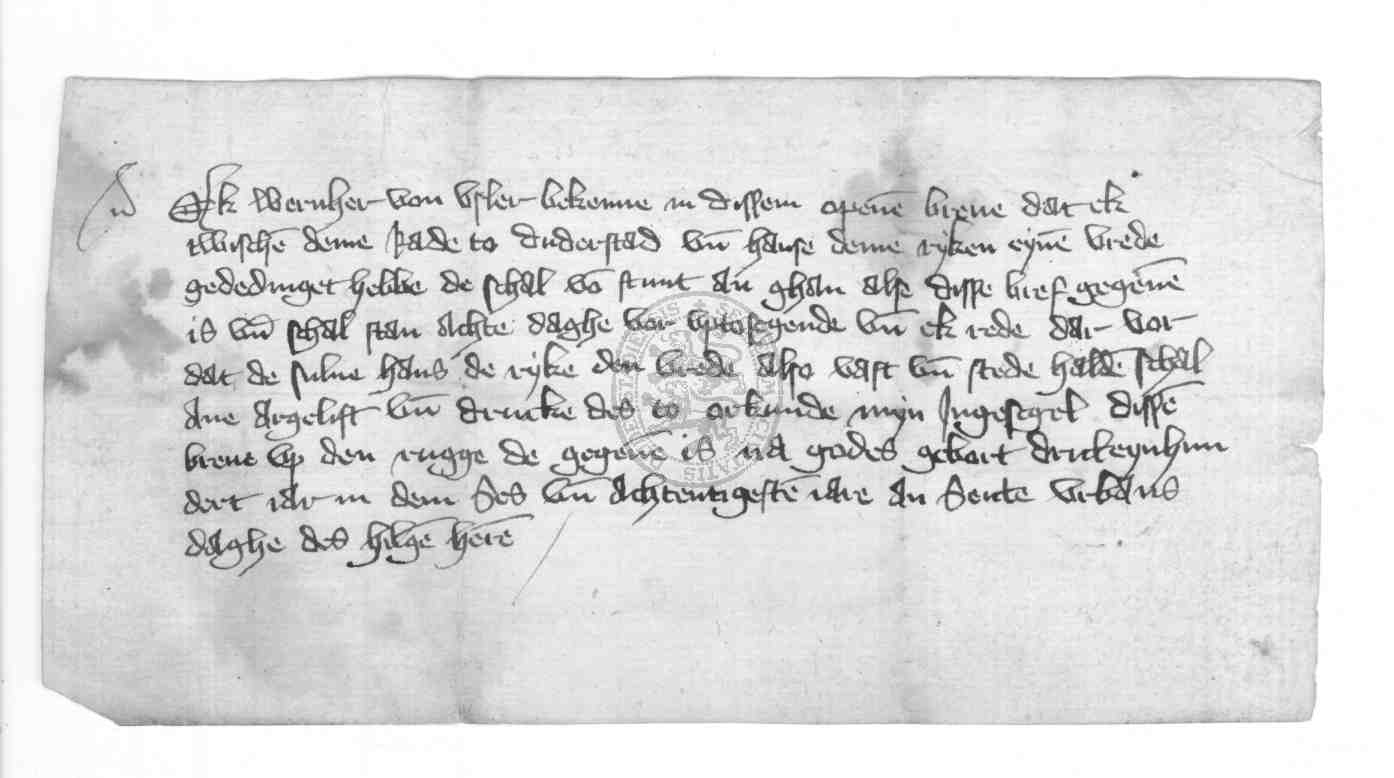 Ek wernher von vsler bekenne in dissem openē breue dat ek
twischē deme Rade to duderstad vn̄ hanse deme ryken eynē vrede
gededinget hebbe de schal vō stunt an ghan alse disse bref gegeuē
is vn̄ schal stan achte daghe vor vptosegende vn̄ ek rede dar vor
dat de sulue hans de ryke den vrede also vast vn̄ stede haldē schal
ane argelist vn̄ drucke des to orkunde myn Ingesegel dissē
breue vp den rugge de gegeuē is na godes gebort drickeynhun
dert iar in dem Ses vn̄ achtentigestē iare an Sente vrbans
daghe des hilgē herē